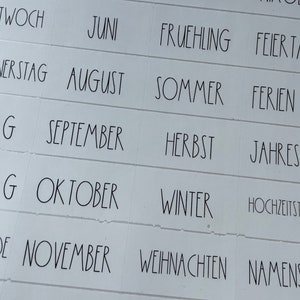 TWOCH JUNI FRUEHLING FEIERTA
NERSTAG AUGUST SOMMER FERIEN
G SEPTEMBER HERBST JAHRES
G OKTOBER WINTER HOCHZEITST
DE NOVEMBER WEIHNACHTEN NAMENS